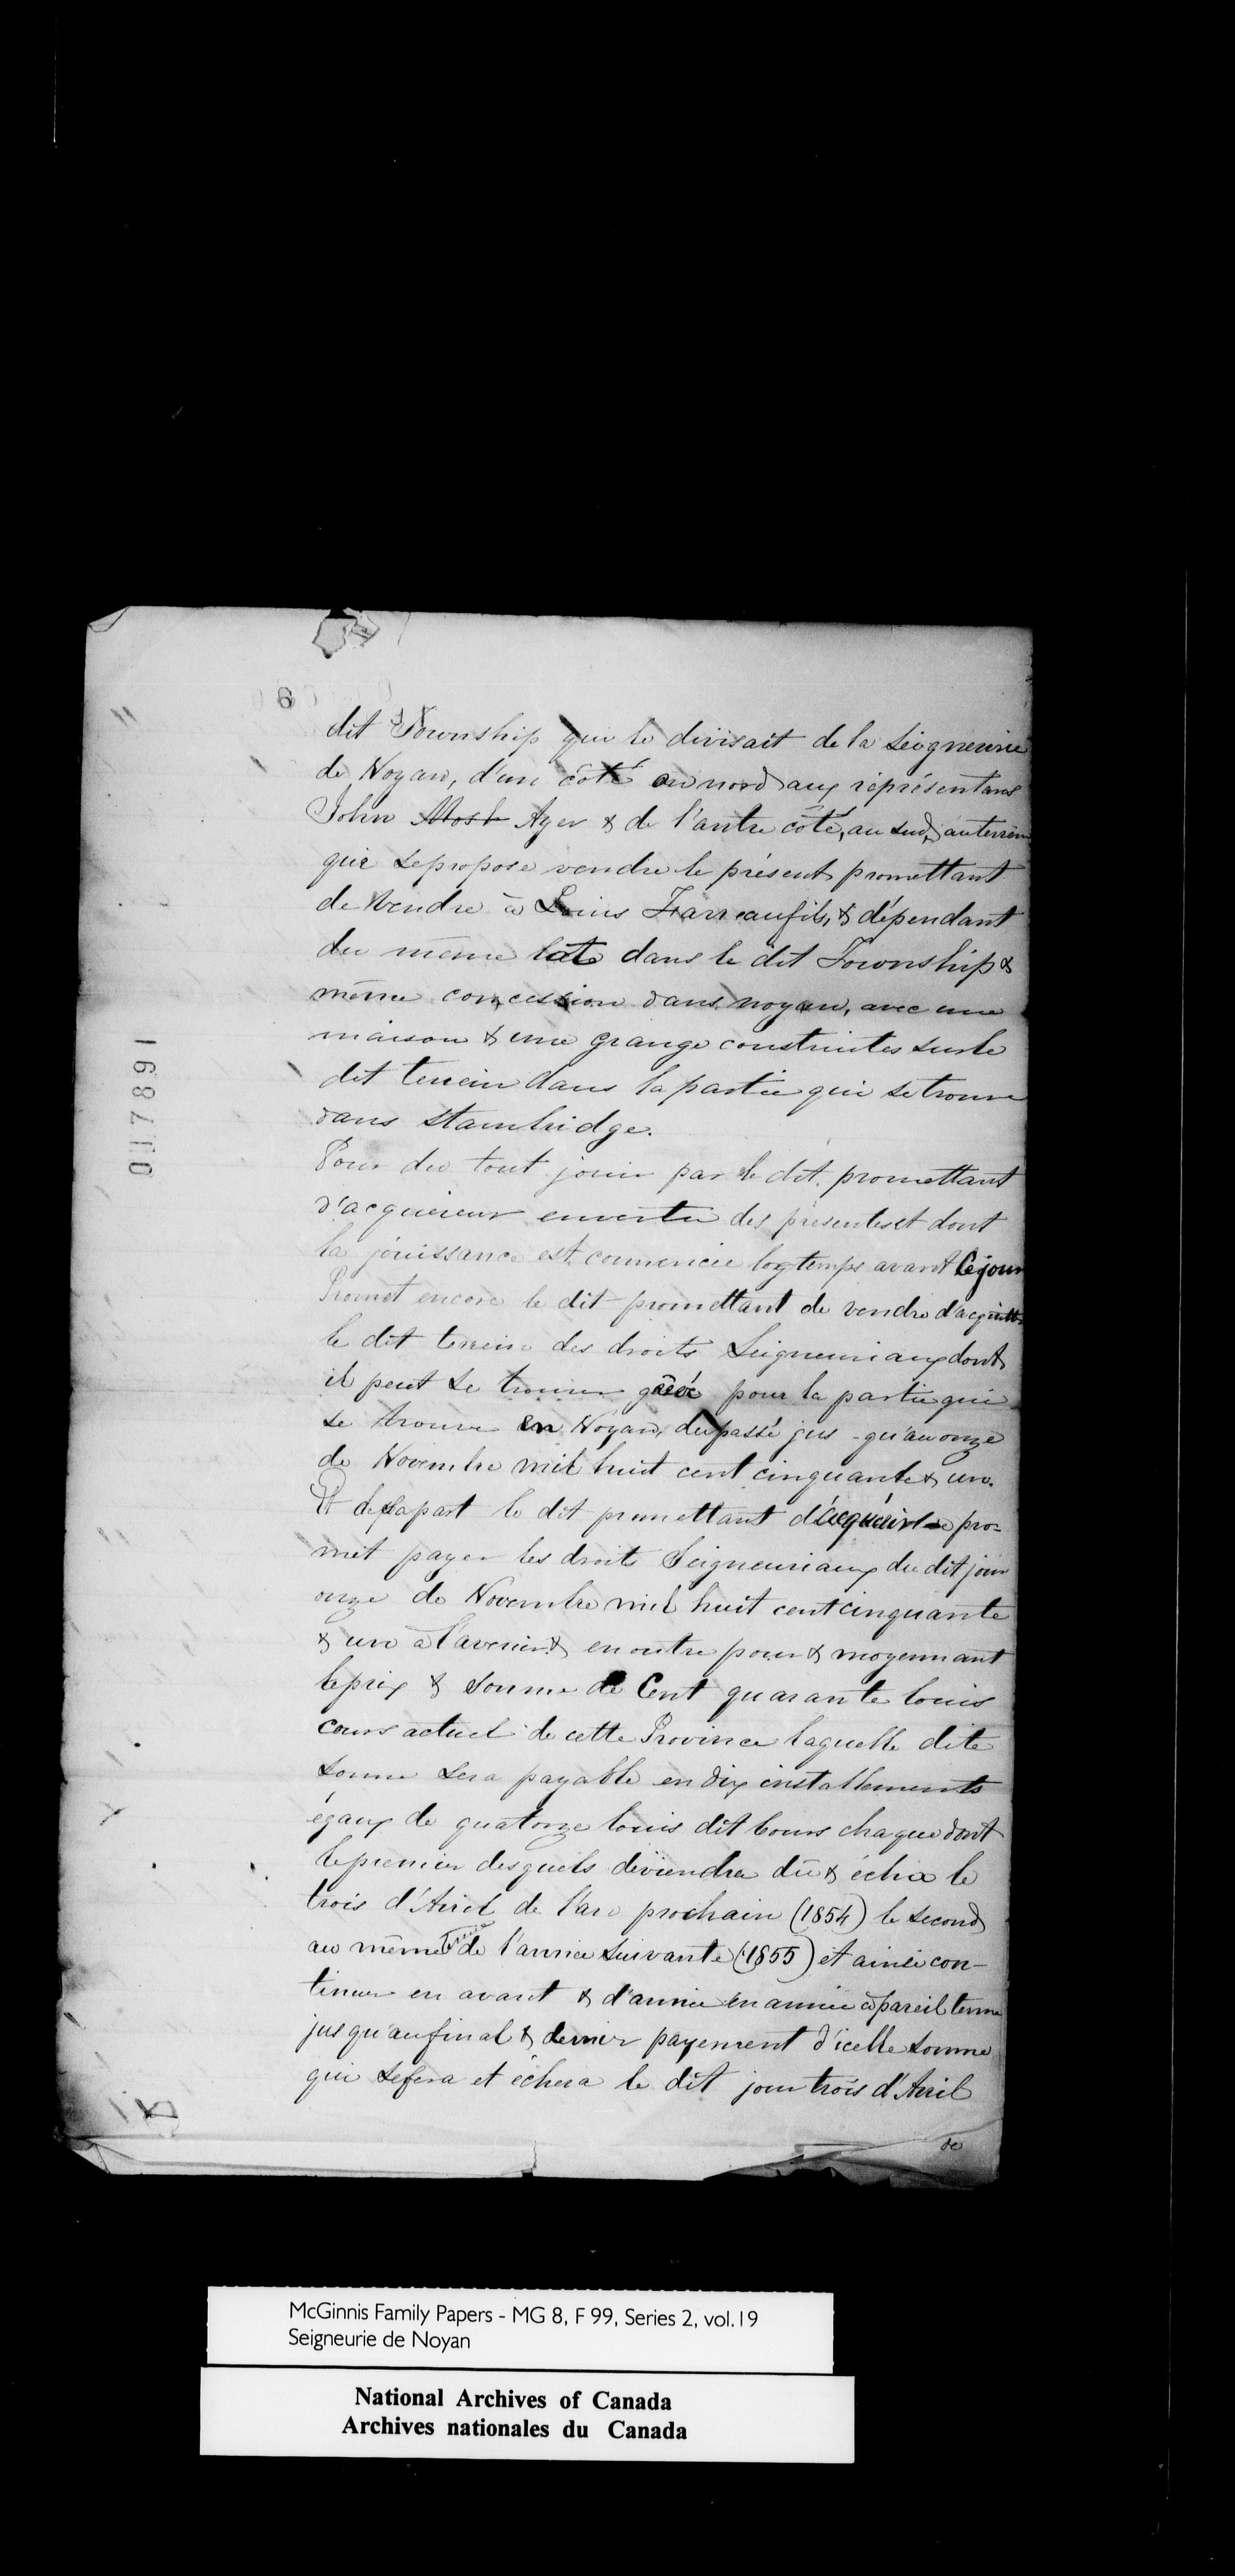 6
dit Township qui le divisait de la Seigneurie
de Noyan, d'un côté au nord aux réprésentans
John Ayer & de l'autre côté, au sud, au terrein
que se propose vendre le présent promettant
de vendre à Louis Farreau fils, & dépendant
du même lots dans le dit Township &
même concession dans noyan, avec une
maison & une grange construites sur le
dit terrein dans la partie qui se trouve
dans Stanbridge.
Pour du tout jouir par le dit promettant
d'acquéreur en vertu des présentes et dont
la jouissance est commencée logtemps avant Ce jour
Promet encore le dit promettant de vendre d'acquitter
le dit terrein des droits Seigneuriaux dont
il peut se trouver grévé pour la partie qui
se trouve en Noyan, du passé jus-qu'au onze
de Novembre mil huit cent cinquante & un.
Et de sa part le dit promettant d'acquérir pro-
met payer les droits Seigneuriaux du dit jour
onze de Novembre mil huit cent cinquante
& un à l'avenir & en outre pour & moyennant
le prix & somme de Cent quarante louis
cours actuel de cette Province laquelle dite
somme sera payable en dix installements
égaux de quatorze louis dit cours chaque dont
le premier desquels deviendra dû & échu le
trois d'Avril de l'an prochain (1854) le second
au même jour de l'année suivante (1855) et ainsi con-
tinuer en avant & d'année en année à pareil terme
jusqu'au final & dernier payement d'icelle somme
qui se fera et échera le dit jour trois d'Avril
de
017891
McGinnis Family Papers - MG 8, F 99, Series 2, vol.19
Seigneurie de Noyan
National Archives of Canada
Archives nationales du Canada